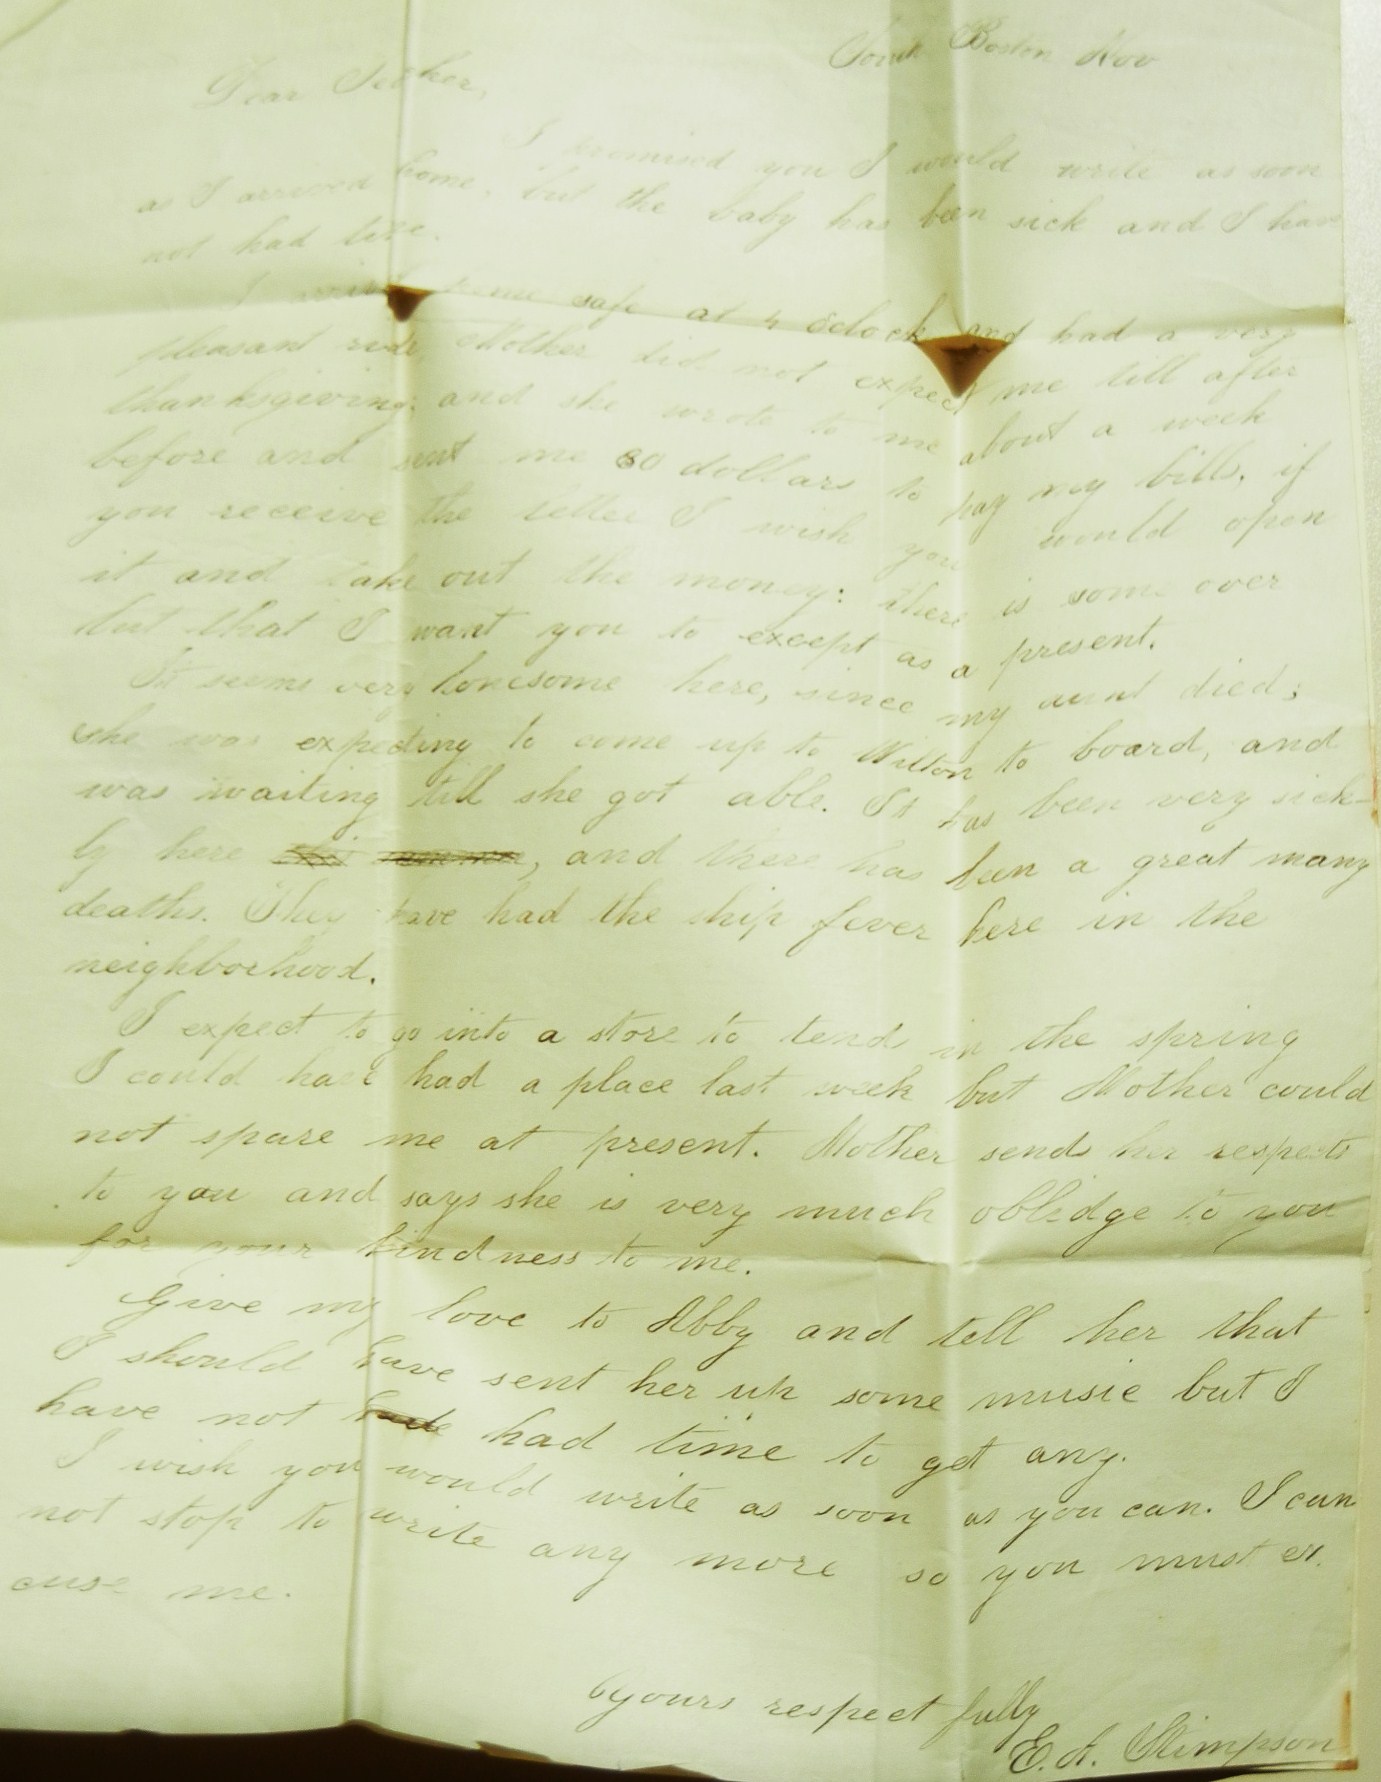 South Boston Nov
Dear Teacher,
I promised you I would write as soon
as I arrived home, but the baby has been sick and I have
not had time.
I arrived home safe at 4 oclock and had a very
pleasant ride, Mother did not expect me till after
thanksgiving; and she wrote to me about a week
before and sent me 80 dollars to pay my bills, if
you receive the letter I wish you would open
it and take out the money: there is some over
but that I want you to except as a present.
It seems very lonesome here, since my aunt died;
she was expecting to come up to Wilton to board, and
was waiting till she got able. It has been very sick-
ly here , and there has been a great many
deaths. They have had the ship fever here in the
neighborhood.
I expect to go into a store to tend in the spring
I could have had a place last week but Mother could
not spare me at present. Mother sends her respects
to you and says she is very much oblidge to you
for your kindness to me.
Give my love to Abby and tell her that
I should have sent her up some music but I
have not had time to get any.
I wish you would write as soon as you can. I can
not stop to write any more so you must ex.
cuse me.
Yours respect fully
E. A. Stimpson